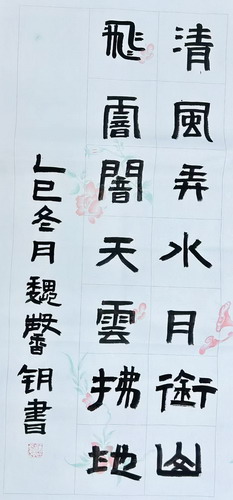 清風弄水月銜山
飛闇天雲拂地
乙巳冬月魏馨钥書